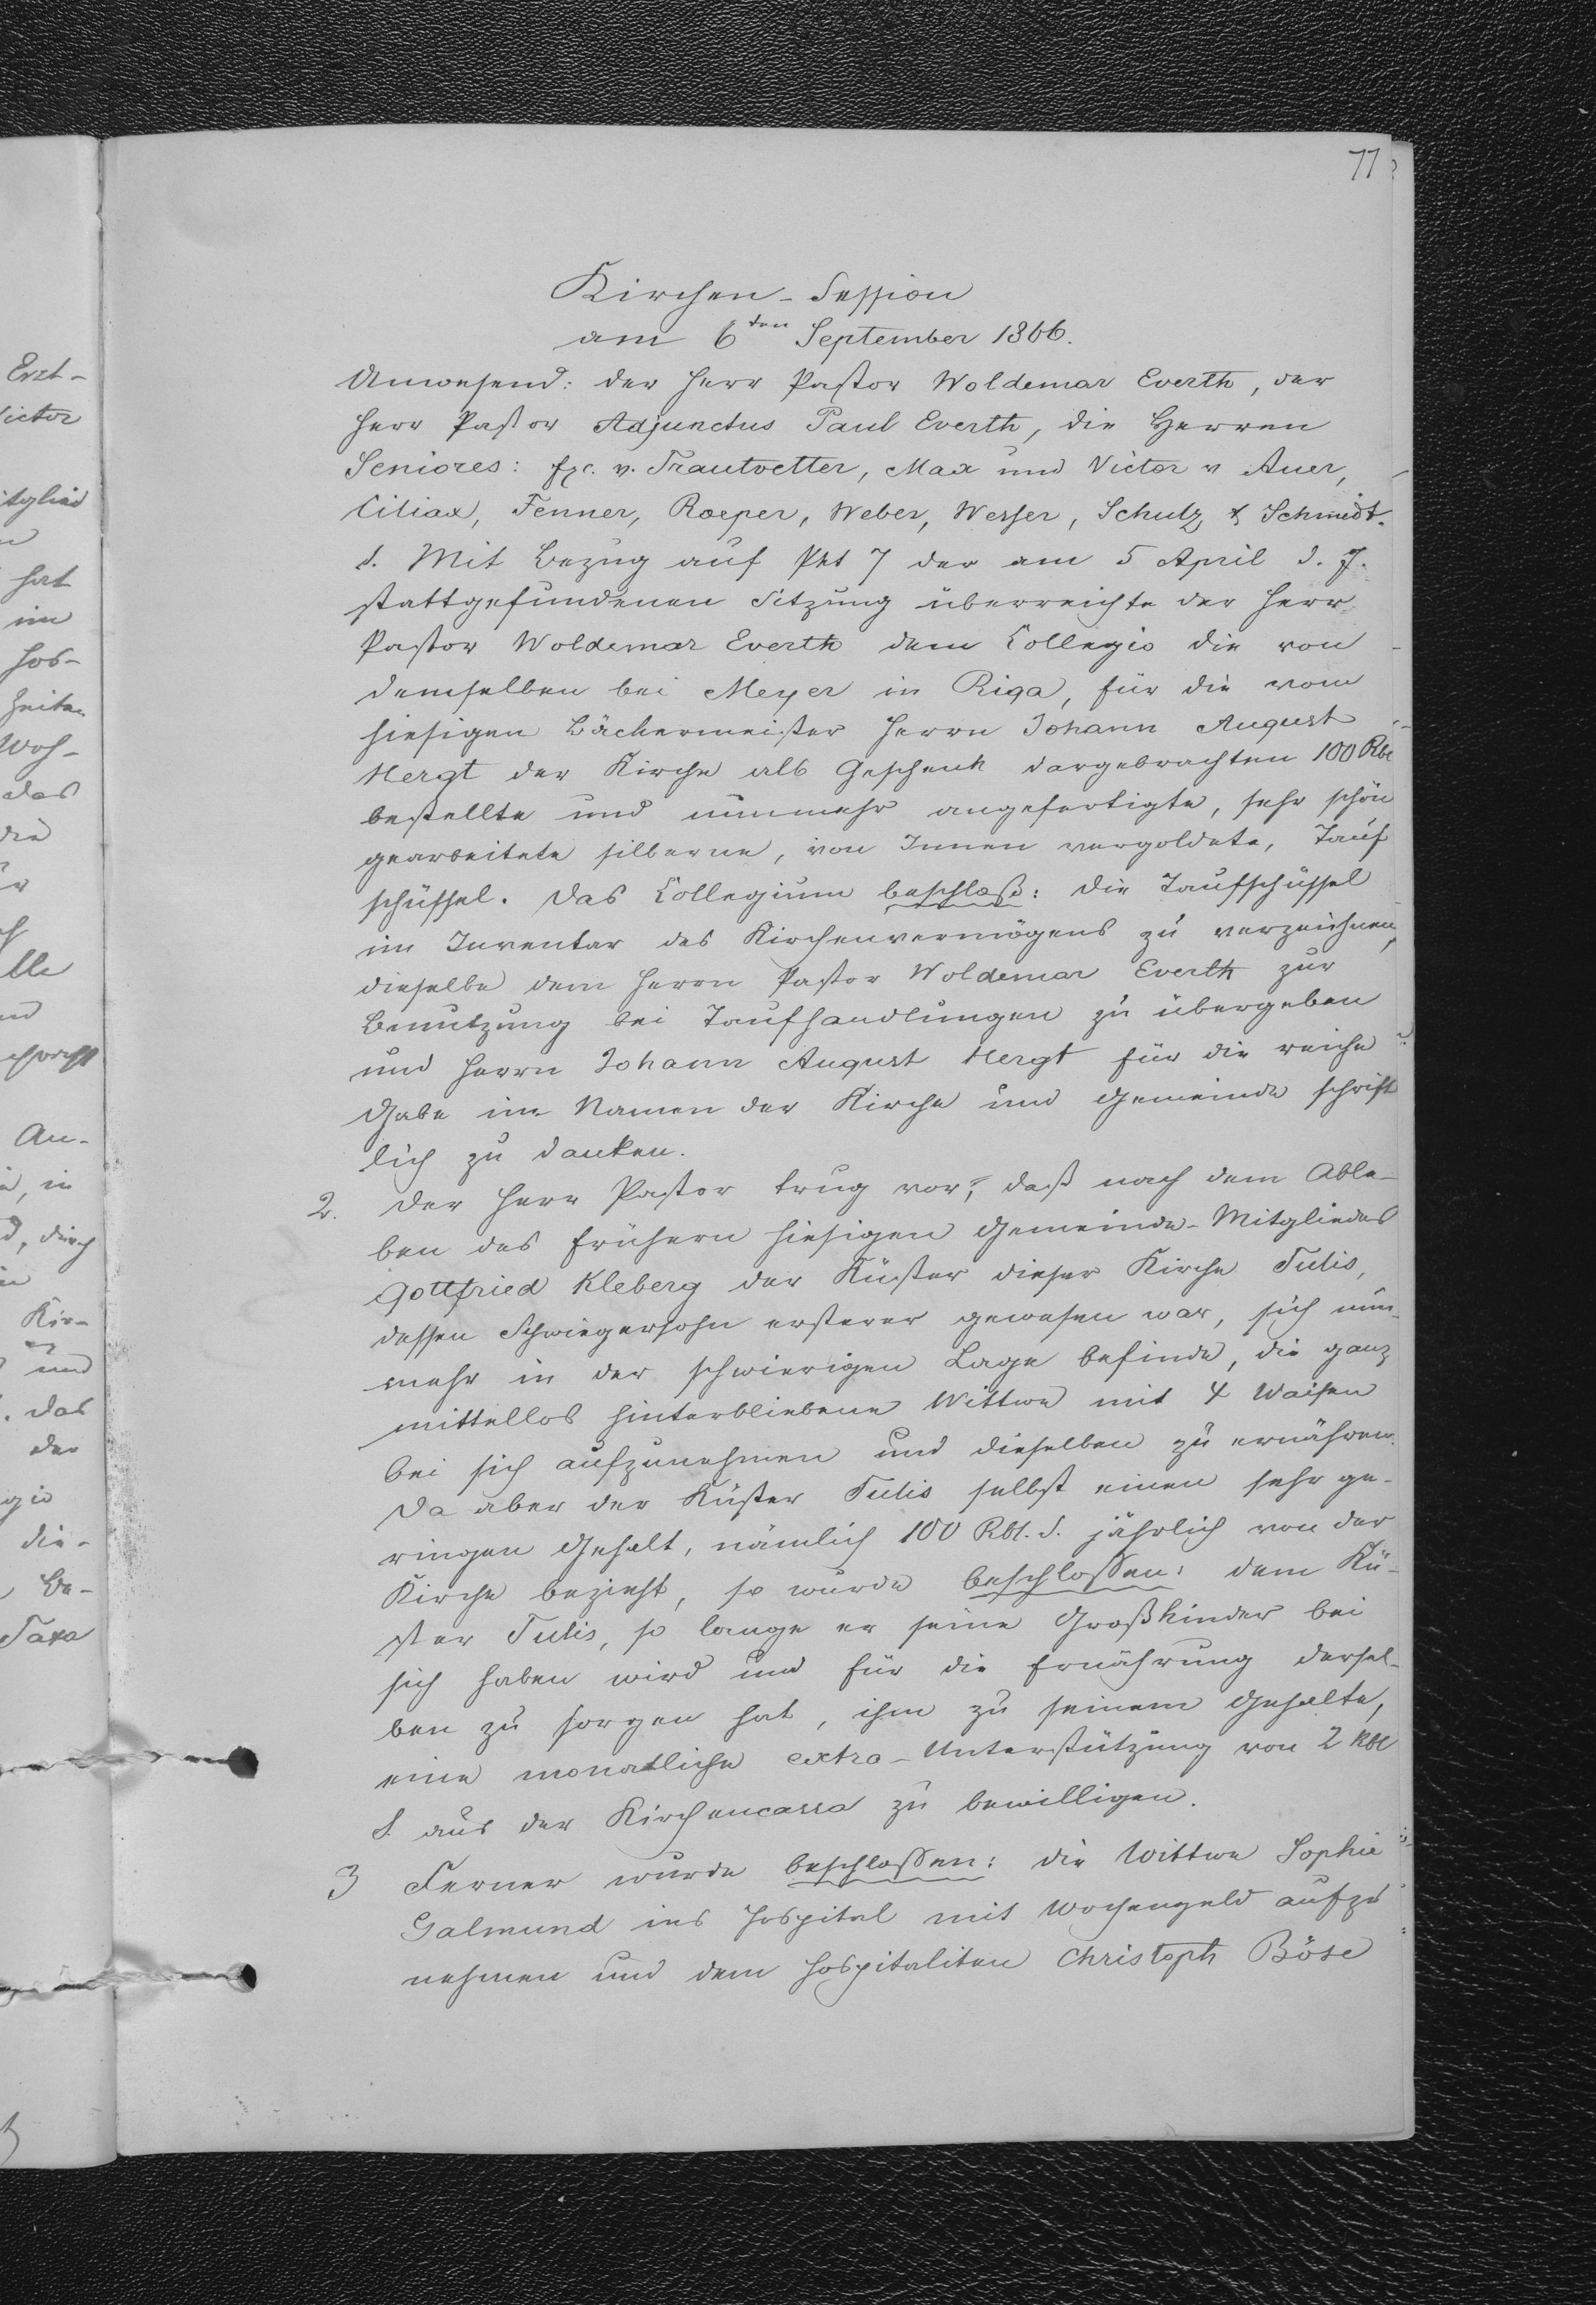 77
Kirchen-Session
am 6ten September 1866.
Anwesend: der Herr Pastor Woldemar Everth, der
Herr Pastor Adjunctus Paul Everth, die Herren
Seniores: Exc. v. Trautvetter, Max und Victor v Auer,
Ciliax, Fenner, Roeper, Weber, Wesser, Schulz & Schmidt.
1. Mit Bezug auf Pkt 7 der am 5 April d. J.
stattgefundenen Sitzung überreichte der Herr
Pastor Woldemar Everth dem Collegio die von
demselben bei Meyer in Riga, für die vom
hiesigen Bäckermeister Herrn Johann August
Hergt der Kirche als Geschenk dargebrachten 100 Rbl
bestellte und nunmehr angefertigte, sehr schön
gearbeitete silberne, von Innen vergoldete, Tauf
schüssel. Das Collegium beschloß: die Taufschüssel
im Inventar des Kirchenvermögens zu verzeichnen,
dieselbe dem Herrn Pastor Woldemar Everth zur
Benutzung bei Taufhandlungen zu übergeben
und Herrn Johann August Hergt für die reiche
Gabe im Namen der Kirche und Gemeinde schrift
lich zu danken.
2. Der Herr Pastor trug vor, daß nach dem Able-
ben des frühern hiesigen Gemeinde-Mitgliedes
Gottfried Kleberg der Küster dieser Kirche Tulis,
dessen Schwiegersohn ersterer gewesen war, sich nun-
mehr in der schwierigen Lage befinde, die ganz
mittellos hinterbliebene Wittwe mit 4 Waisen
bei sich aufzunehmen und dieselben zu ernähren.
Da aber der Küster Tulis selbst einen sehr ge-
ringen Gehalt, nämlich 100 Rbl. S. jährlich von der
Kirche bezieht, so wurde beschlossen: dem Kü-
ster Tulis, so lange er seine Großkinder bei
sich haben wird und für die Ernährung dersel-
ben zu sorgen hat, ihm zu seinem Gehalte,
eine monatliche extra-Unterstützung von 2 Rbl
S. aus der Kirchencassa zu bewilligen.
3 Ferner wurde beschlossen: die Wittwe Sophie
Galmund ins Hospital mit Wochengeld aufzu
nehmen und dem Hospitaliten Christoph Böse